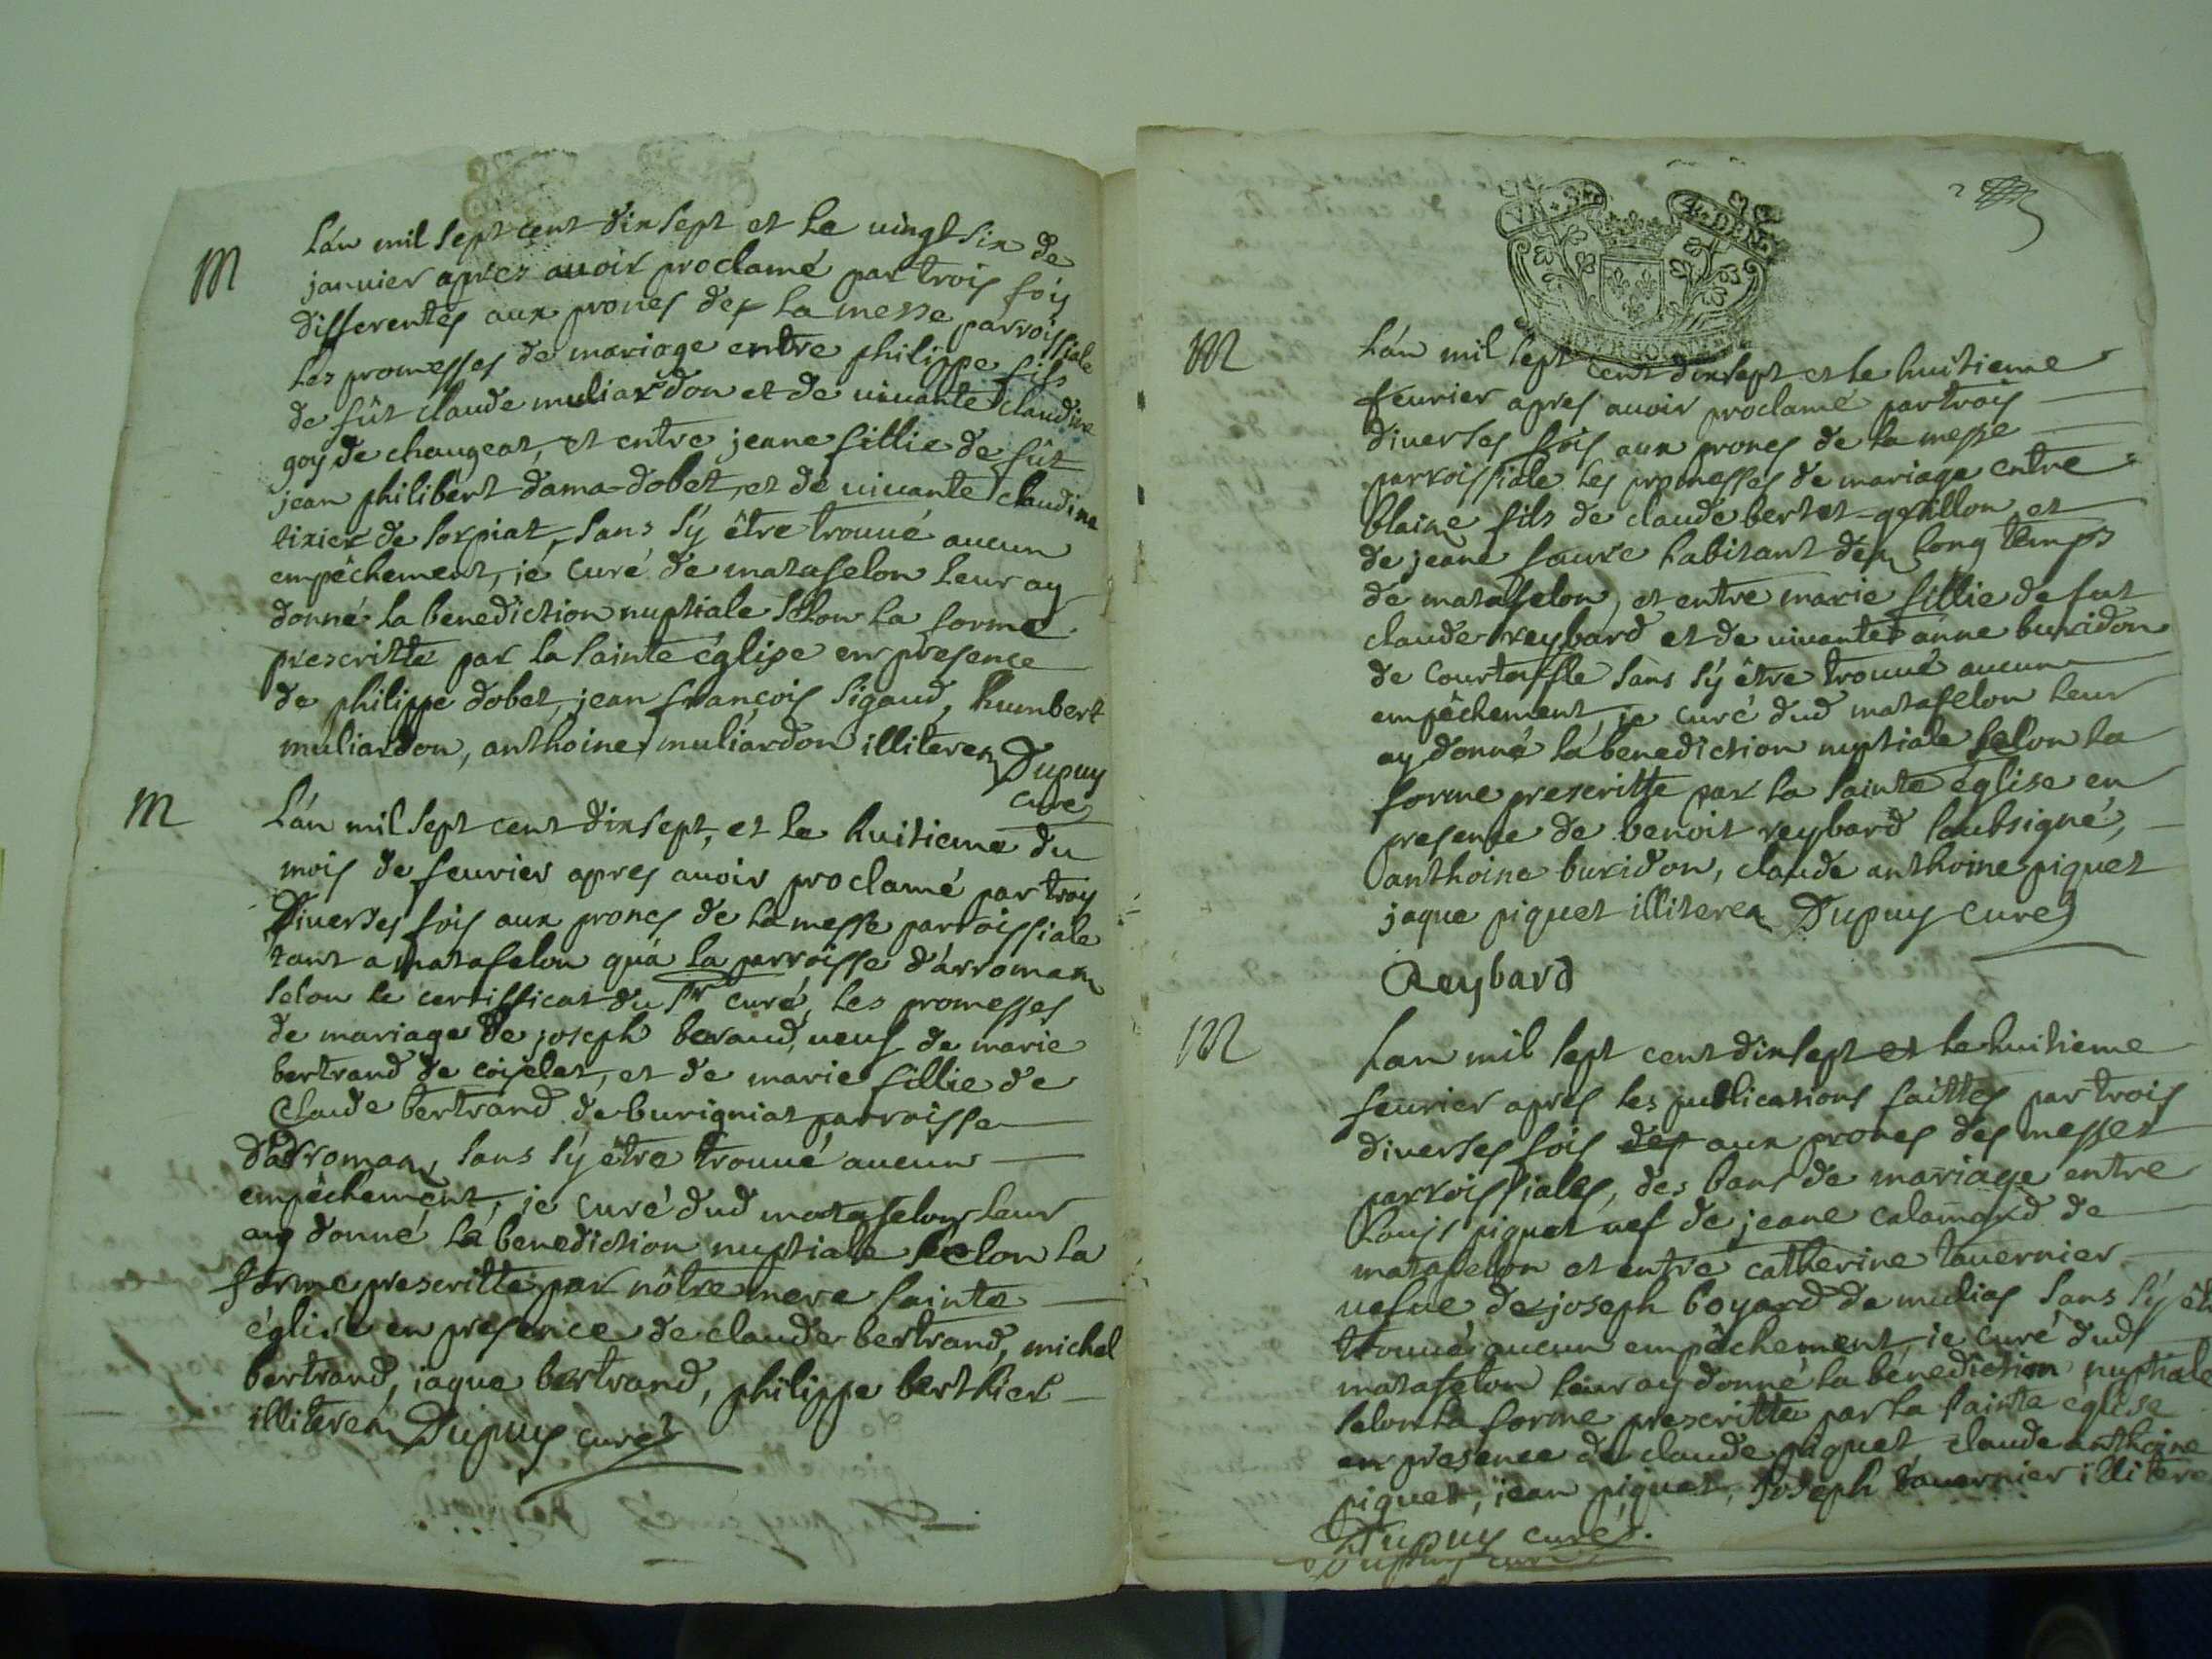 M
Lán mil sept cent dixsept et le uingt six de
januier apres auoir proclamé par trois fois
differentes aux pronès des la messe parroissiale
les promesses de mariage entre philippe fils
de fût claude muliardon et de uiuante claudine
goy de changeat, et entre jeane fillie de fût
jean philibert dama-dobet, et de uiuante claudine
tixier de sorpiat, sans sý être trouué aucun
empêchement, je curé de matafelon leur ay
donné la benediction nuptiale selon la forme
prescritte par la sainte église en presence
de philippe dobet, jean françois sigaud, humbert
muliardon, anthoine muliardon illiteres Dupuy
curé
M
Lán mil sept cent dixsept, et le huitieme du
mois de feurier apres auoir proclamé par troy
diuerses fois aux prones de la messe parroissiale
tant a matafelon quá la parroisse dárromas
selon le certifficat du sr curé, les promesses
de mariage de joseph beraud, ueuf de marie
bertrand de coiselet, et de marie fillie de
Claude bertrand de burigniat parroisse
dárromas, sans sý être trouué aucun
empêchement, je curé dud matafelon leur
ay donné la benediction nuptiale selon la
forme prescritte par nôtre mere sainte
église en presence de claude bertrand, michel
bertrand, jaque bertrand, philippe berthier
illiteres Dupuy curé
2
VN S 4 DEN
M
Lán mil sept cent dixsept et le huitieme
feurier apres auoir proclamé par trois
diuerses fois aux prones de la messe
parroissiale les promesses de mariage entre
blaise fils de claude bertet-grillon et
de jeane faure habitant des long temps
de matafelon, et entre marie fillie de fut
claude reybard et de uiuante anne buridon
de courtouffle sans sý être trouué aucun
empêchement, je curé dud matafelon leur
ay donné la benediction nuptiale selon la
forme prescritte par la sainte église en
presence de benoit reybard soubsigné,
anthoine buridon, claude anthoine piquet
jaque piquet illiteres Dupuy curé
Reybard
M
Lan mil sept cent dixsept et le huitieme
feurier apres les publications faittes par trois
diuerses fois des aux prones des messes
parroissiales, des bans de mariage entre
Louis piquet uef de jeane calamard de
matafelon et entre catherine tauernier
uefue de joseph boyard de mulias sans sý êt
trouué aucun empêchement, je curé dud
matafelon leur ay donné la bénediction nuptiale
selon la forme prescritte par la sainte église
en presence de claude piquet, claude anthoine
piquet, jean piquet, Joseph tauernier illitere
Dupuy curé.
Dupuy curé